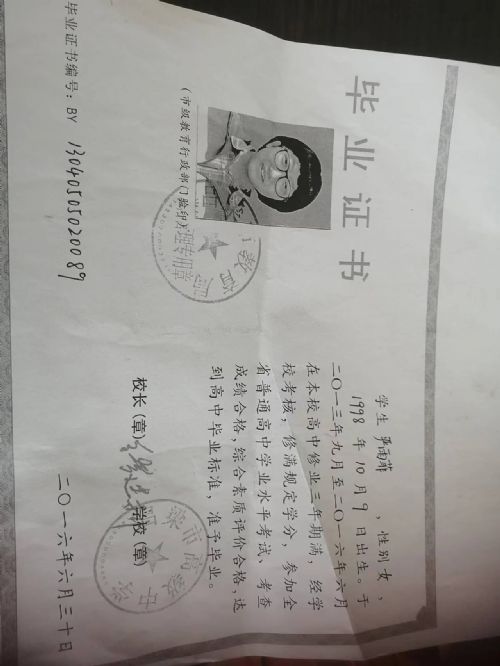 毕业证书
学生 严雨 ，性别女，
1998 年 10 月 9 日出生。于
二〇一三年九月至二〇一六年六月
在本校高中修业三年期满，经学
校考核，修满规定学分，参加全
省普通高中学业水平考试、考查
成绩合格，综合素质评价合格，达
到高中毕业标准，准予毕业。
校长（章） 学校（章）
二〇一六年六月三十日
（市级教育行政部门验印）
毕业证书编号：BY 13040505020089